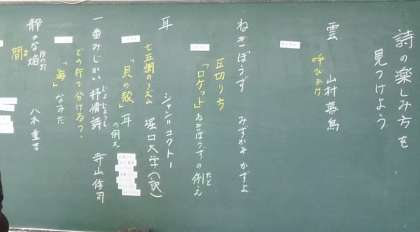 詩の楽しみ方を
見つけよう
雲 山村暮鳥
呼びかけ
ねぎぼうず みずかみかずよ
区切りち
「ロケット」ねぎぼうずの例え
たと
耳 ジャン・コクトー
堀口大学(訳)
七五調のリズム
「貝の殻」耳の例え
一番みじかい抒情詩 寺山修司
じょじょうし
どの行で分けてる?
「海」なみだ
静かな焔 八木重吉
ほのお
間
ま